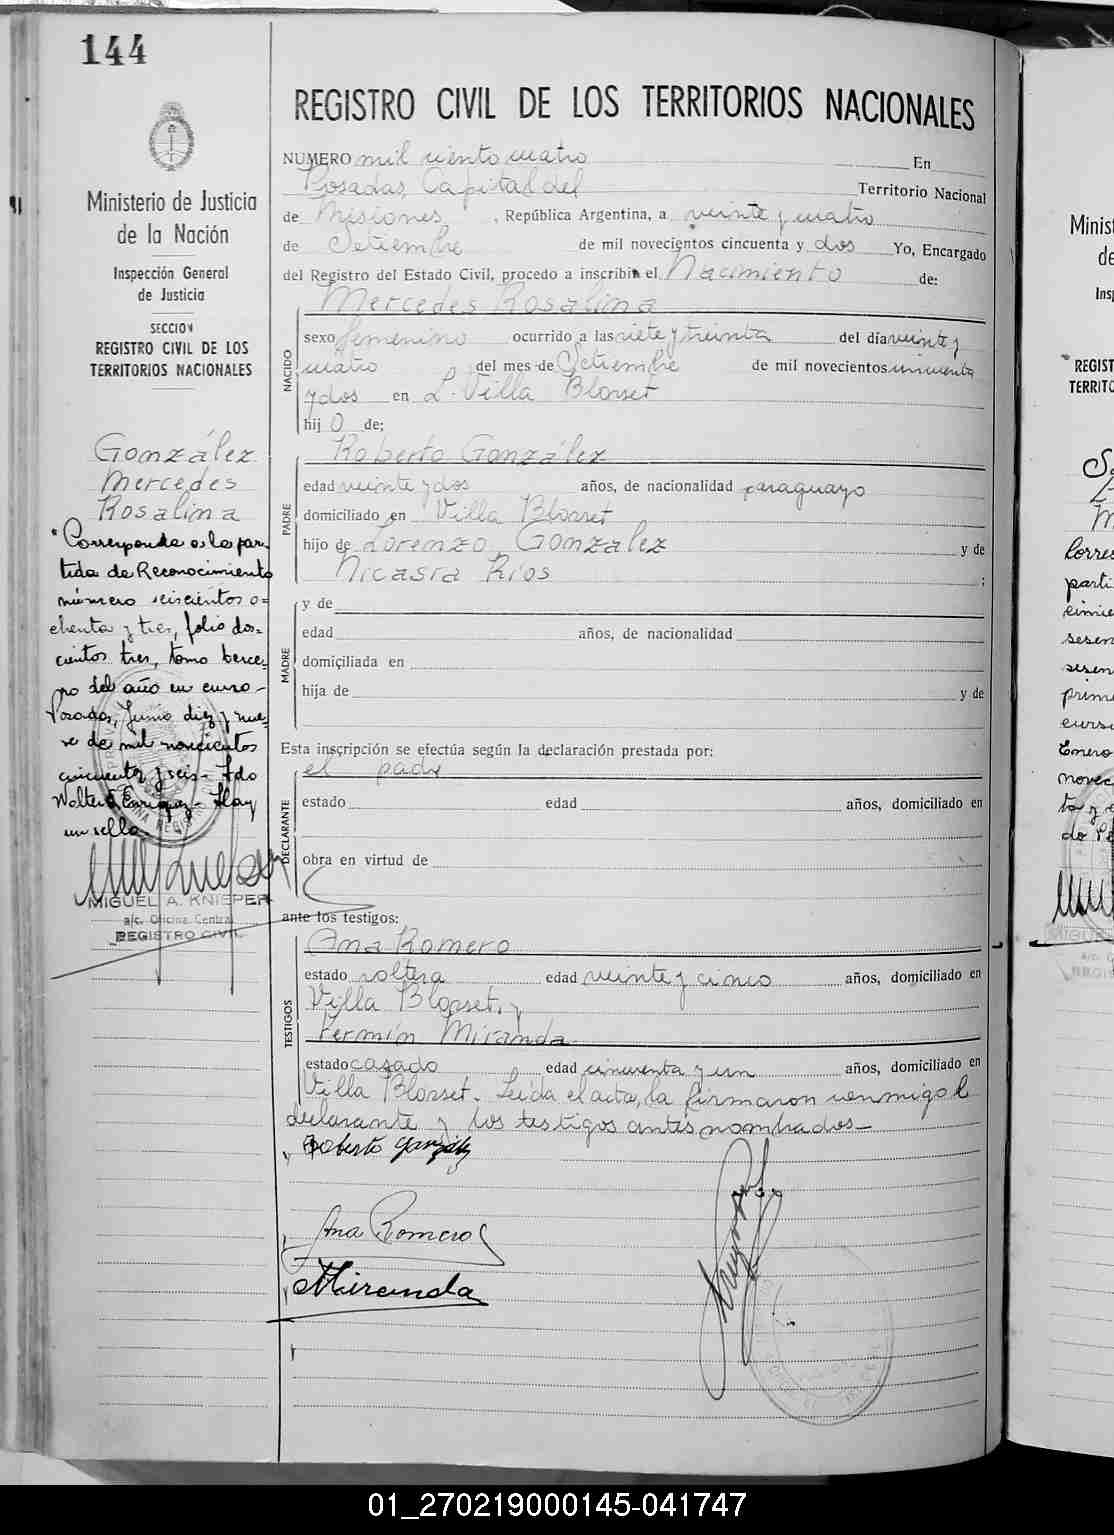 144
REGISTRO CIVIL DE LOS TERRITORIOS NACIONALES
Ministerio de Justicia
de la Nación
Inspección General
de Justicia
SECCION
REGISTRO CIVIL DE LOS
TERRITORIOS NACIONALES
González
Mercedes
Rosalina
"Corresponde a la par-
tida de Reconocimiento
número seiscientos o-
chenta y tres, folio dos-
cientos tres, tomo terce-
ro del año en curso-
Posadas, Junio diez y nue-
ve de mil novecientos
cincuenta y seis- Fdo
Walter Enriquez- Hay
un sello-
MIGUEL A. KNIEPER
a/c. Oficina Central
REGISTRO CIVIL
NUMERO mil ciento cuatro En
Posadas, Capital del Territorio Nacional
de Misiones, República Argentina, a veinte y cuatro
de Setiembre de mil novecientos cincuenta y dos Yo, Encargado
del Registro del Estado Civil, procedo a inscribir el Nacimiento de:
NACIDO
Mercedes Rosalina
sexo femenino ocurrido a las siete y treinta del día veinte y
cuatro del mes de Setiembre de mil novecientos cincuenta
y dos en L. Villa Blosset
hij o de;
PADRE
Roberto González
edad veinte y dos años, de nacionalidad paraguayo
domiciliado en Villa Blosset
hijo de Lorenzo González y de
Nicasia Ríos ;
MADRE
y de
edad años, de nacionalidad
domiciliada en
hija de y de
Esta inscripción se efectúa según la declaración prestada por:
DECLARANTE
el padre
estado edad años, domiciliado en
obra en virtud de
ante los testigos:
TESTIGOS
Ana Romero
estado soltera edad veinte y cinco años, domiciliado en
Villa Blosset, y
Fermín Miranda
estado casado edad cincuenta y un años, domiciliado en
Villa Blosset. Leída el acta, la firmaron conmigo el
declarante y los testigos antes nombrados-
Roberto González
Ana Romero
Miranda
01_270219000145-041747